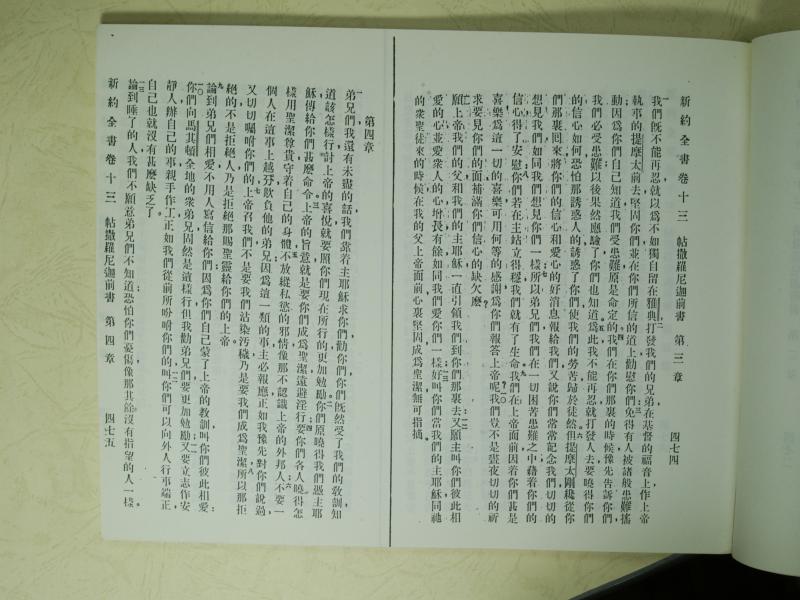 新約全書卷十三 帖撒羅尼迦前書 第三章 四七四
我們既不能再忍就以為不如獨自留在雅典打發我們的兄弟在基督的福音上作上帝
執事的提摩太前去堅固你們並在你們所信的道上勸慰你們免得有人被諸般患難搖
動因為你們自己知道我們受患難原是命定的我們在你們那裏的時候豫先告訴你們
我們必受患難以後果然應驗了你們也知道為此我不能再忍就打發人去要曉得你們
的信心如何恐怕那誘惑人的誘惑了你們使我們的勞苦歸於徒然但提摩太剛纔從你
們那裏囘來將你們的信心和愛心的好消息報給我們又說你們常常記念我們切切的
想見我們如同我們想見你們一樣所以弟兄們我們在一切困苦患難之中藉着你們的
信心得了安慰你們若在主站立得穩我們就有了生命我們在上帝面前因着你們甚是
喜樂為這一切的喜樂可用何等的感謝為你們報答上帝呢我們豈不是晝夜切切的祈
求要見你們的面補滿你們信心的缺欠麼
願上帝我們的父和我們的主耶穌一直引領我們到你們那裏去又願主叫你們彼此相
愛的心並愛衆人的心增長有餘如同我們愛你們一樣好叫你們當我們的主耶穌同祂
的衆聖徒來的時候在我的父上帝面前心裏堅固成為聖潔無可指摘
第四章
弟兄們我還有未盡的話我們靠着主耶穌求你們勸你們你們既然受了我們的教訓知
道該怎樣行討上帝的喜悅就要照你們現在所行的更加勉勵你們原曉得我們憑主耶
穌傳給你們甚麼命令上帝的旨意就是要你們成為聖潔遠避淫行要你們各人曉得怎
樣用聖潔尊貴守着自己的身體不放縱私慾的邪情像那不認識上帝的外邦人不要一
個人在這事上越分欺負他的弟兄因為這一類的事主必報應正如我豫先對你們說過
又切切囑咐你們的上帝召我們不是要我們沾染污穢乃是要我們成為聖潔所以那拒
絕的不是拒絕人乃是拒絕那賜聖靈給你們的上帝
論到弟兄們相愛不用人寫信給你們因為你們自己蒙了上帝的教訓叫你們彼此相愛
你們向馬其頓全地的衆弟兄固然是這樣行但我勸弟兄們要更加勉勵又要立志作安
靜人辦自己的事親手作工正如我們從前所吩咐你們的叫你們可以向外人行事端正
自己也就沒有甚麼缺乏了
論到睡了的人我們不願意弟兄們不知道恐怕你們憂傷像那其餘沒有指望的人一樣
新約全書卷十三 帖撒羅尼迦前書 第四章 四七五